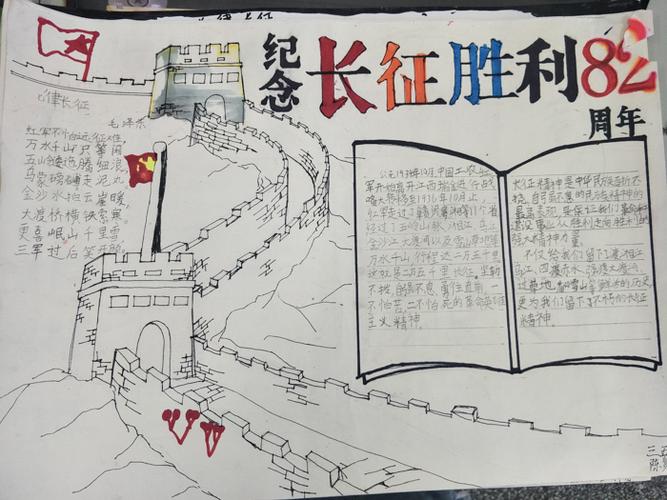 纪念长征胜利82
周年
七律长征
毛泽东
红军不怕远征难,
万水千山只等闲
五岭逶迤腾细浪,
乌蒙磅礴走泥丸
金沙水拍云崖暖,
大渡桥横铁索寒。
更喜岷山千里雪
三军过后笑开颜
公元1934年10月,中国工农红
军开始离开江西瑞金进行战
略大转移至1936年10月止,
红军走过了赣
个省
经过了五岭山脉、湘江、乌江
金沙江、大渡河以及雪山草地等
万水千山,行程达二万五千里
这就是二万五千里长征。坚韧
不拔,
勇往直前,一
不怕苦,二不怕死的革命英雄
主义精神。
长征精神是中华民族百折不
挠,自强不息的民族精神的
最高表现,是保证我们革命和
建设事业从胜利走向胜利的
强大精神力量。
不仅给我们留下了湘江
乌江、四渡赤水、强渡大渡河、
过草地、
雪山等
的历史
更为我们留下了不朽的长征
精神。
三五
陈